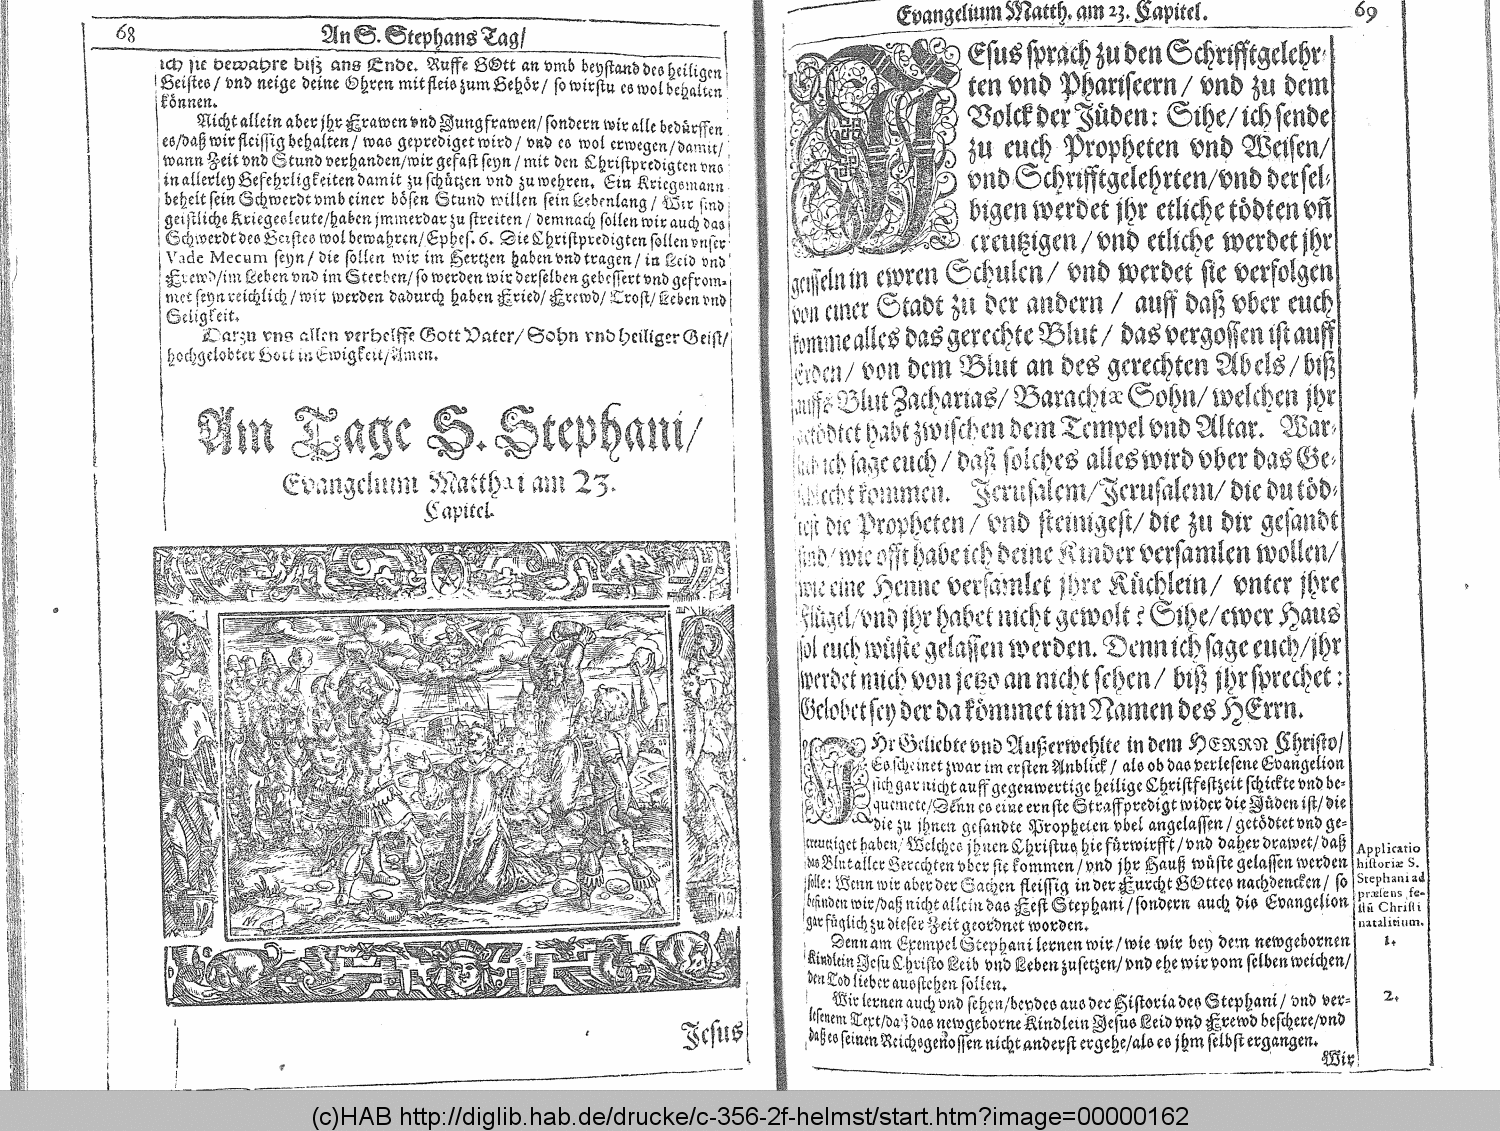 68
An S. Stephans Tag/
ich sie bewahre biß ans Ende. Ruffe GOtt an vmb beystand des heiligen
Geistes/ vnd neige deine Ohren mit fleis zum Gehör/ so wirstu es wol behalten
können.
Nicht allein aber jhr Frawen vnd Jungfrawen/ sondern wir alle bedürffen
es/daß wir fleissig behalten/ was geprediget wird/ vnd es wol erwegen/damit/
wann Zeit vnd Stund verhanden/wir gefast seyn/ mit den Christpredigten vns
in allerley Gefehrligkeiten damit zu schützen vnd zu wehren. Ein Kriegsmann
behelt sein Schwerdt vmb einer bösen Stund willen sein Lebenlang/ Wir sind
geistliche Kriegesleute/haben jmmerdar zu streiten/ demnach sollen wir auch das
Schwerdt des Geistes wol bewahren/Ephes. 6. Die Christpredigten sollen vnser
Vade Mecum seyn/ die sollen wir im Hertzen haben vnd tragen/ in Leid vnd
Frewd/im Leben vnd im Sterben/so werden wir derselben gebessert vnd gefrom-
met seyn reichlich/wir werden dadurch haben Fried/ Frewd/ Trost/ Leben vnd
Seligkeit.
Darzu vns allen verhelffe Gott Vater/ Sohn vnd heiliger Geist/
hochgelobter Gott in Ewigkeit/Amen.
Am Tage S. Stephani/
Evangelium Matthæi am 23.
Capitel.
Jesus
Evangelium Matth. am 23. Capitel.
69
JEsus sprach zu den Schrifftgelehr-
ten vnd Phariseern/ vnd zu dem
Volck der Jüden: Sihe/ ich sende
zu euch Propheten vnd Weisen/
vnd Schrifftgelehrten/vnd dersel-
bigen werdet jhr etliche tödten vñ
creutzigen/ vnd etliche werdet jhr
geisseln in ewren Schulen/ vnd werdet sie verfolgen
von einer Stadt zu der andern/ auff daß vber euch
komme alles das gerechte Blut/ das vergossen ist auff
Erden/ von dem Blut an des gerechten Abels/ biß
auffs Blut Zacharias/ Barachiæ Sohn/ welchen jhr
getödtet habt zwischen dem Tempel vnd Altar. War-
lich ich sage euch/ daß solches alles wird vber das Ge-
schlecht kommen. Jerusalem/Jerusalem/ die du töd-
test die Propheten/ vnd steinigest/ die zu dir gesandt
sind/ wie offt habe ich deine Kinder versamlen wollen/
wie eine Henne versamlet jhre Küchlein/ vnter jhre
Flügel/vnd jhr habet nicht gewolt? Sihe/ ewer Haus
sol euch wüste gelassen werden. Denn ich sage euch/jhr
werdet mich von jetzo an nicht sehen/ biß jhr sprechet:
Gelobet sey der da kömmet im Namen des HErrn.
IHr Geliebte vnd Außerwehlte in dem HERRN Christo/
Es scheinet zwar im ersten Anblick/ als ob das verlesene Evangelion
sich gar nicht auff gegenwertige heilige Christfestzeit schickte vnd be-
quemete/Denn es eine ernste Straffpredigt wider die Jüden ist/ die
die zu jhnen gesandte Propheten vbel angelassen/ getödtet vnd ge-
creutziget haben/ Welches jhnen Christus hie fürwirfft/ vnd daher drawet/ daß
das Blut aller Gerechten vber sie kommen/ vnd jhr Hauß wüste gelassen werden
solle: Wenn wir aber der Sachen fleissig in der Furcht GOttes nachdencken/ so
befinden wir/daß nicht allein das Fest Stephani/sondern auch dis Evangelion
gar füglich zu dieser Zeit geordnet worden.
Denn am Exempel Stephani lernen wir/ wie wir bey dem newgebornen
Kindlein Jesu Christo Leib vnd Leben zusetzen/ vnd ehe wir vom selben weichen/
den Tod lieber ausstehen sollen.
Wir lernen auch vnd sehen/beydes aus der Historia des Stephani/ vnd ver-
lesenem Text/daß das newgeborne Kindlein Jesus Leid vnd Frewd beschere/vnd
daß es seinen Reichsgenossen nicht anderst ergehe/als es jhm selbst ergangen.
Wir
Applicatio
historiæ S.
Stephani ad
præsens fe-
stũ Christi
natalitium.
1.
2.
(c)HAB http://diglib.hab.de/drucke/c-356-2f-helmst/start.htm?image=00000162